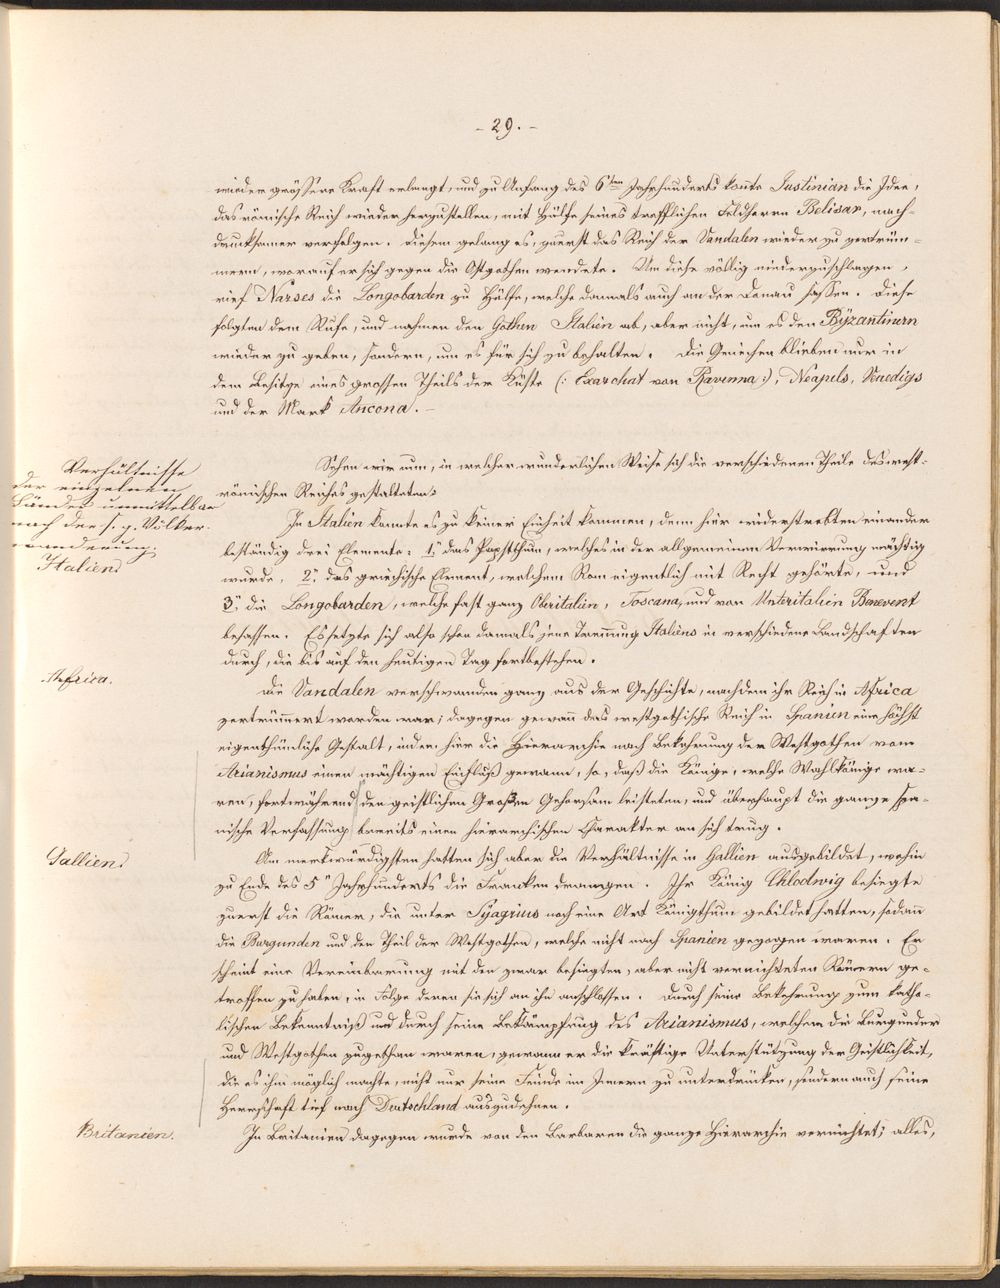 - 29. -
wieder größere Kraft erlangt, und zu Anfang des 6ten Jahrhunderts konnte Justinian die Idee,
das römische Reich wieder herzustellen, mit Hülfe seines trefflichen Feldherrn Belisar, nach-
drucksamer verfolgen. Diesem gelang es, zuerst das Reich der Vandalen wieder zu zertrüm-
mern, worauf er sich gegen die Ostgothen wendete. Um diese völlig niederzuschlagen,
rief Narses die Longobarden zu Hülfe, welche damals auch an der Donau saßen. Diese
folgten dem Rufe, und nahmen den Gothen Italien ab, aber nicht, um es den Byzantinern
wieder zu geben, sondern, um es für sich zu behalten. Die Griechen blieben nur in
dem Besitze eines grossen Theils der Küste (: Exarchat von Ravenna :), Neapels, Venedigs
und der Mark Ancona. -
Verhältnisse
der einzelnen
Länder unmittelbar
nach der s. g. Völker-
wanderung
Sehen wir nun, in welcher wunderlichen Weise sich die verschiedenen Theile des west-
römischen Reiches gestalteten:
Italien
In Italien konnte es zu keiner Einheit kommen, denn hier widerstrebten einander
beständig drei Elemente: 1, das Papstthum, welches in der allgemeinen Verwirrung mächtig
wurde, 2, das griechische Element, welchem Rom eigentlich mit Recht gehörte, und
3, die Longobarden, welche fast ganz Oberitalien, Toscana, und von Unteritalien Benevent
besassen. Es setzte sich also schon damals jene Trennung Italiens in verschiedene Landschaften
durch, die bis auf den heutigen Tag fortbestehen.
Africa.
Die Vandalen verschwanden ganz aus der Geschichte, nachdem ihr Reich in Africa
zertrümmert worden war; dagegen gewann das westgothische Reich in Spanien eine höchst
eigenthümliche Gestalt, indem hier die Hierarchie nach Bekehrung der Westgothen vom
Arianismus einen mächtigen Einfluß gewann, so, daß die Könige, welche Wahlkönige wa-
ren, fortwährend den geistlichen Großen Gehorsam leisteten, und überhaupt die ganze spa-
nische Verfassung bereits einen hierarchischen Charakter an sich trug.
Gallien.
Am merkwürdigsten hatten sich aber die Verhältnisse in Gallien ausgebildet, wohin
zu Ende des 5n Jahrhunderts die Franken drangen. Ihr König Chlodwig besiegte
zuerst die Römer, die unter Syagrius noch eine Art Königthum gebildet hatten, sodann
die Burgunden und den Theil der Westgothen, welche nicht nach Spanien gezogen waren. Er
scheint eine Vereinbarung mit den zwar besiegten, aber nicht vernichteten Römern ge-
troffen zu haben, in Folge deren sie sich an ihn anschlossen. Durch seine Bekehrung zum katho-
lischen Bekenntniß und durch seine Bekämpfung des Arianismus, welchem die Burgunder
und Westgothen zugethan waren, gewann er die kräftige Unterstützung der Geistlichkeit,
die es ihm möglich machte, nicht nur seine Feinde im Innern zu unterdrücken, sondern auch seine
Herrschaft tief nach Deutschland auszudehnen.
Britanien.
In Britanien dagegen wurde von den Barbaren die ganze Hierarchie vernichtet; alles,